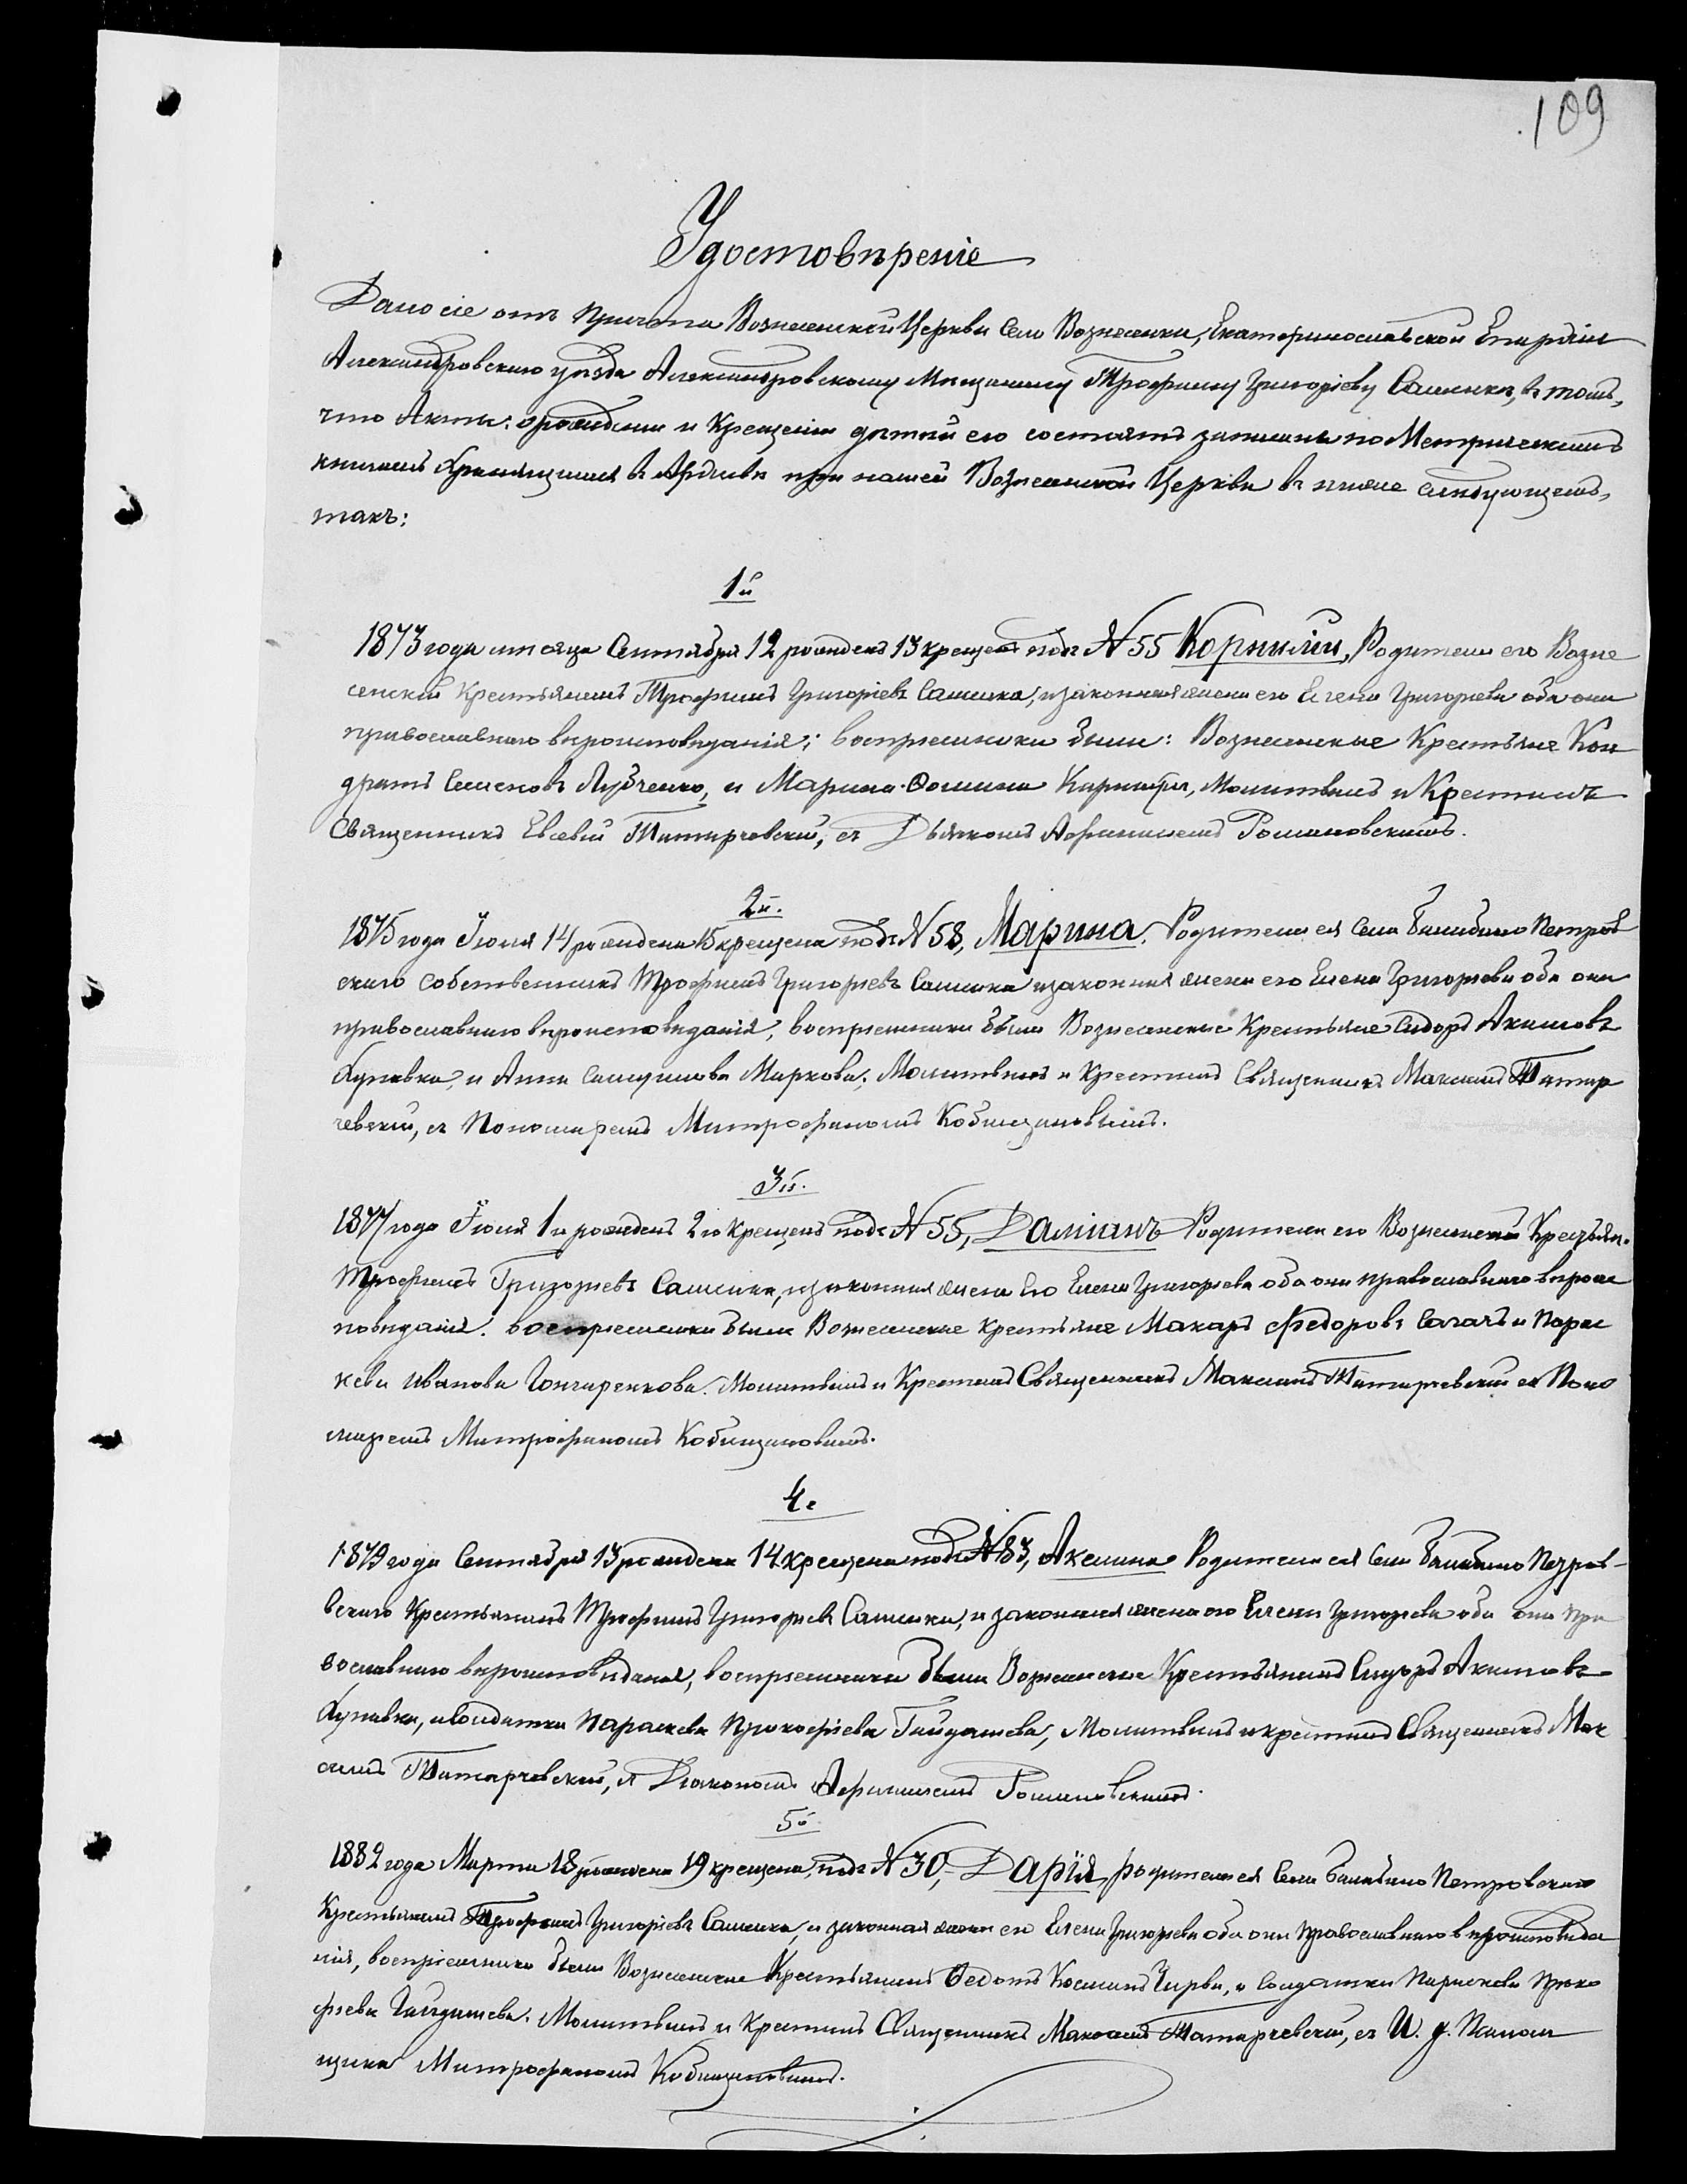 109
Удостовѣреніе
Дано сіе отъ Причта Вознесенской Церкви Села Вознесенки, Екатеринославской Епархіи
Александровскаго уѣзда Александровскому Мещанину Трофиму Григорьеву Сашенкѣ, въ томъ,
что Акты: о рожденіи и Крещеніи дѣтей его состоятъ записаны по Метрическимъ
книгамъ хранящимся въ Архивѣ при нашей Вознесенской Церкви въ числѣ слѣдующемъ,
такъ:
1й
1873 года мѣсяца Сентября 12 рожденъ 13 крещенъ подъ N 55 Корнилій, Родители его Возне
сенскій Крестьянинъ Трофимъ Григоріевъ Сашенка, и законная жена его Елена Григорьева оба они
православнаго вѣроисповѣданія; воспріемники были: Вознесенскіе Крестьяне Кон
дратъ Семеновъ Лубченко, и Марина Ѳомина, Молитвилъ и Крестилъ
Священникъ Евсевій Татарчевскій, съ Дьякономъ Романовскимъ.
2й.
1875 года Іюля 14 рождена 15 крещена подъ N 58, Марина. Родители ея Села Балабино Петров
скаго собственникъ Трофимъ Григорьевъ Сашенка и законная жена его Елена Григорьева оба они
православнаго вѣроисповѣданія, воспріемники были Вознесенскіе Крестьяне Сидоръ Акимовъ
Купавка, и Анна Самуилова Маркова; Молитвилъ и Крестилъ Священникъ Максимъ Татар
чевскій, съ Пономаремъ Митрофаномъ Кобищановымъ.
3й.
1877 года Іюля 1го рожденъ 2го Крещенъ подъ N 55, Даміанъ Родители его Вознесенскій Крестьян.
Трофимъ Григорьевъ Сашенка, и законная жена Его Елена Григорьева оба они православнаго вѣроис
повѣданія. воспріемники были Вознесенскіе крестьяне Макаръ Федоровъ Сагачъ и Парас
кева Иванова Гончаренкова. Молитвилъ и Крестилъ Священникъ Максимъ Татарчевскій съ Поно
маремъ Митрофаномъ Кобищановымъ.
4.
1879 года Сентября 13 рождена 14 крещена подъ N 83, Акилина Родители ея Села Балабино Петров-
вскаго Крестьянинъ Трофимъ Григорьевъ Сашенка, и законная жена его Елена Григорьева оба они пра
вославнаго вѣроисповѣданія, воспріемники были Вознесенскіе Крестьянинъ Сидоръ Акимовъ
Купавка, и солдатка Параскева Прокофіева Гайдашева, Молитвилъ и крестилъ Священникъ Мак
симъ Татарчевскій, съ Діакономъ Романовскимъ.
5й
1882 года Марта 18 рождена 19 крещена, подъ N 30, Дарія, родители ея Села Балабино Петровскаго
Крестьянинъ Трофимъ Григоріевъ Сашенка, и законная жена его Елена Григорьева оба они православнаго вѣроисповѣда
нія, воспріемники были Вознесенскіе Крестьянинъ Ѳедотъ Косминъ Чирва, и Солдатка Параскева Проко
фіева Гайдашева. Молитвилъ и Крестилъ Священникъ Максимъ Татарчевскій, съ И. д. Псалом
щика Митрофаномъ Кобищановымъ.